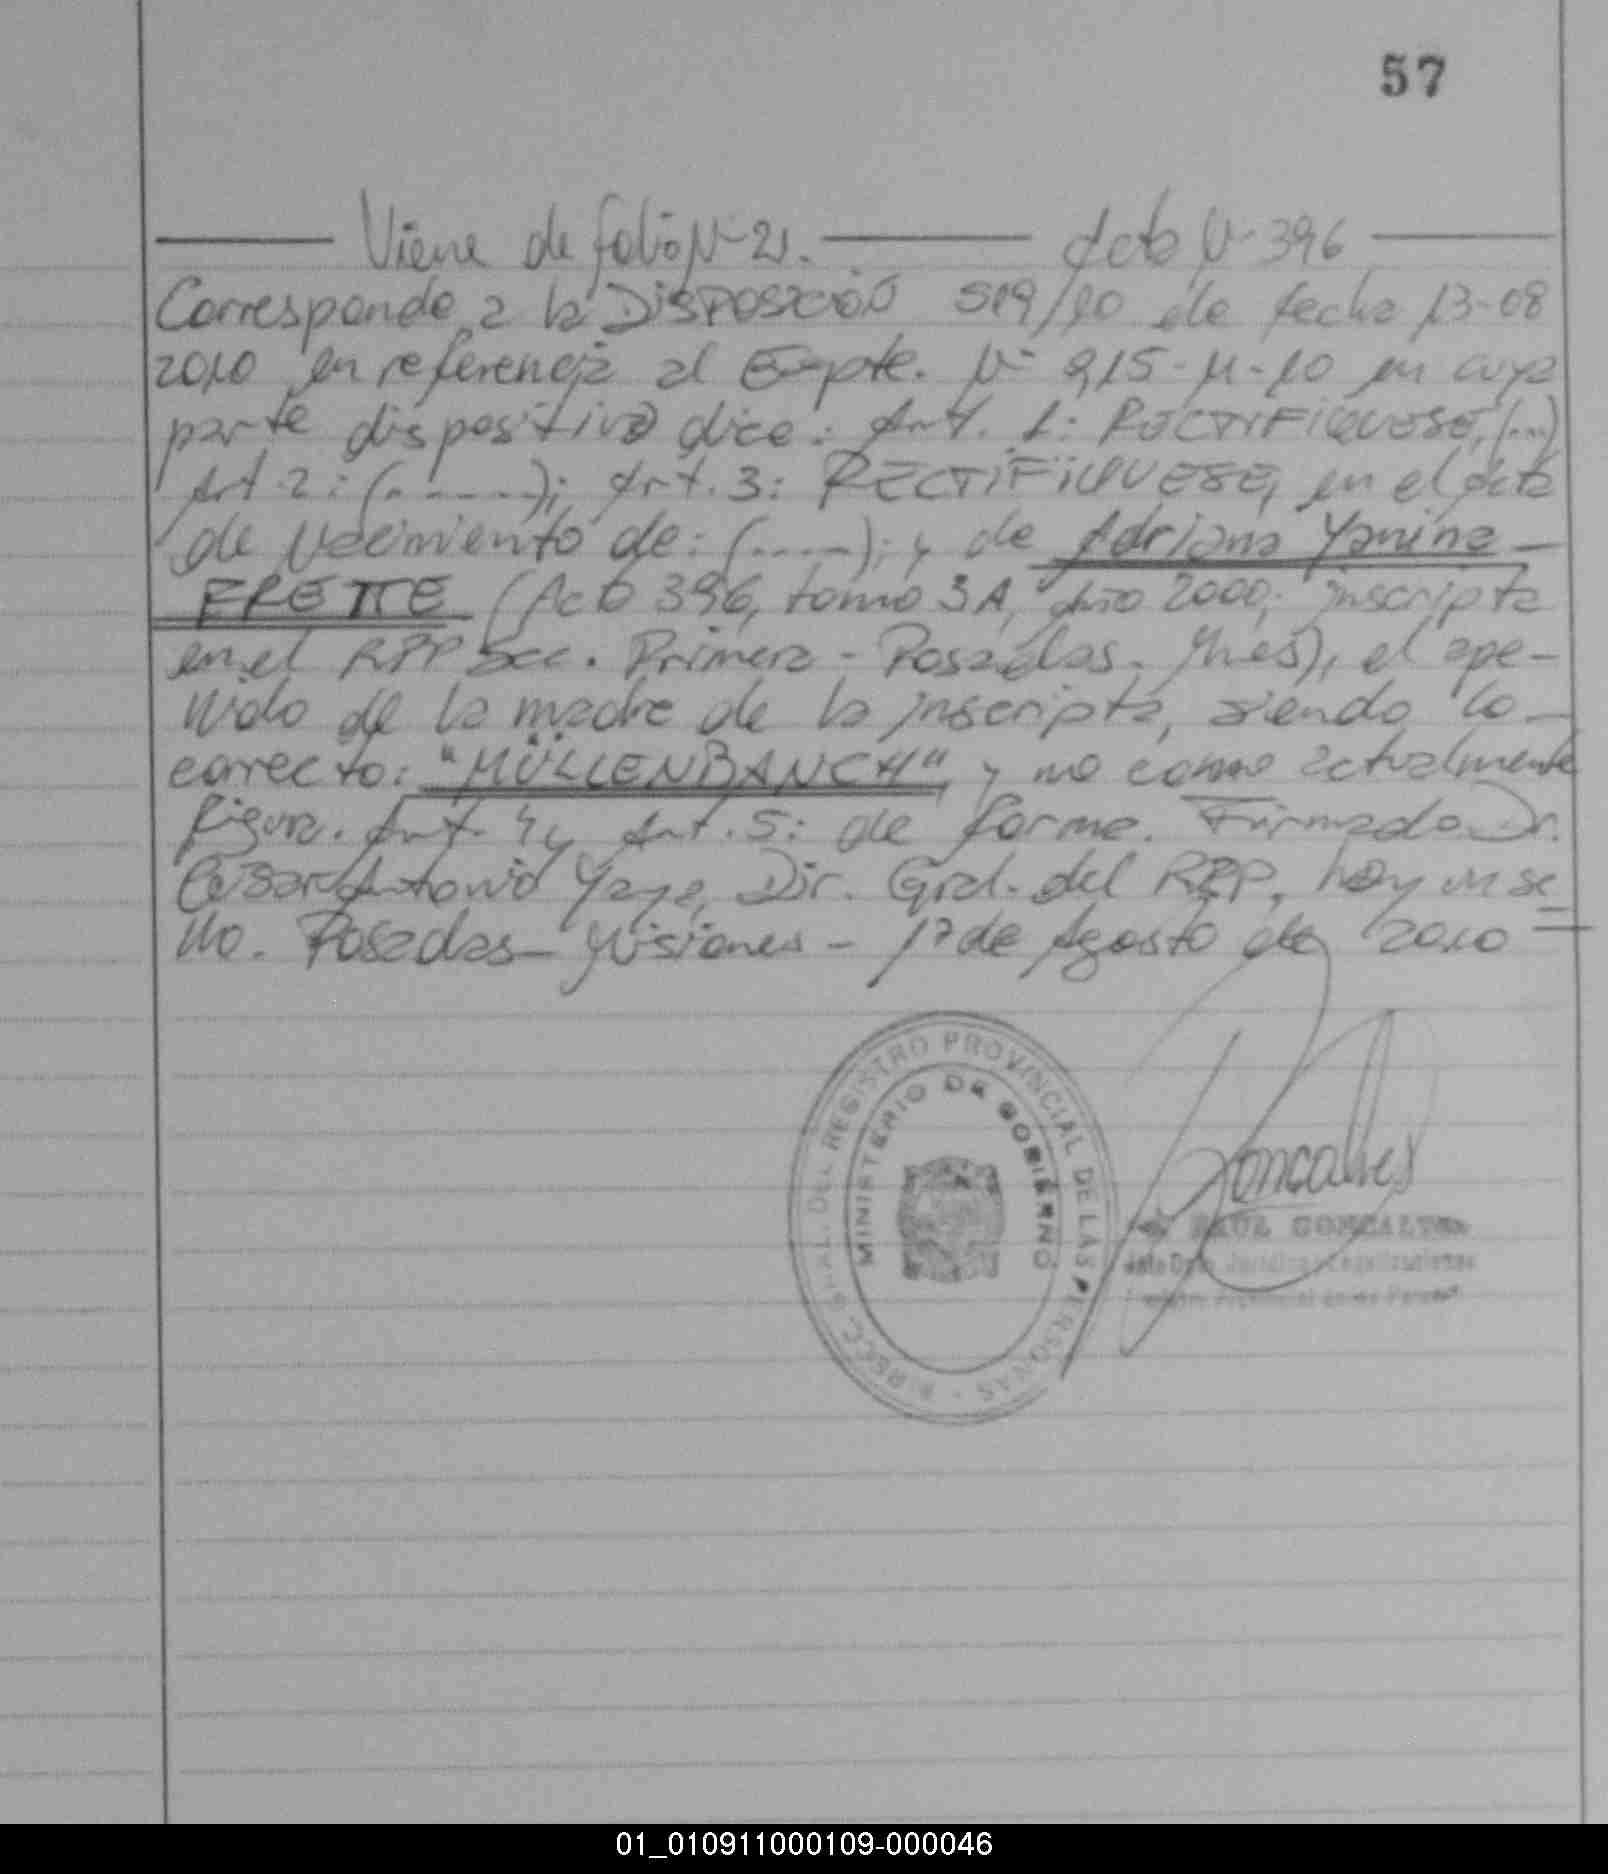 57
Viene de folio Nº 21. Acta Nº 396
Corresponde a la DISPOSICIÓN 519/10 de fecha 13-08
2010 en referencia al Expte. Nº 915-M-10 en cuya
parte dispositiva dice: Art. 1: RECTIFIQUESE, (...)
Art. 2: (......); Art. 3: RECTIFIQUESE, en el Acta
de Nacimiento de: (.....); y de Adriana Yanina
FRETTE (Acta 396, tomo 3A, Año 2000, inscripta
en el RPP Sec. Primera - Posadas. Mnes), el ape-
llido de la madre de la inscripta, siendo lo
correcto: "MÜLLENBANCH" y no como actualmente
figura. Art. 4 y Art. 5: de forma. Firmado Dr.
Cesar Antonio Yaya, Dir. Gral. del RPP, hay un se
llo. Posadas - Misiones - 17 de Agosto de 2010 =
GRAL. DEL REGISTRO PROVINCIAL DE LAS PERSONAS
MINISTERIO DE GOBIERNO
Goncalves
RAUL GONCALVES
01_010911000109-000046